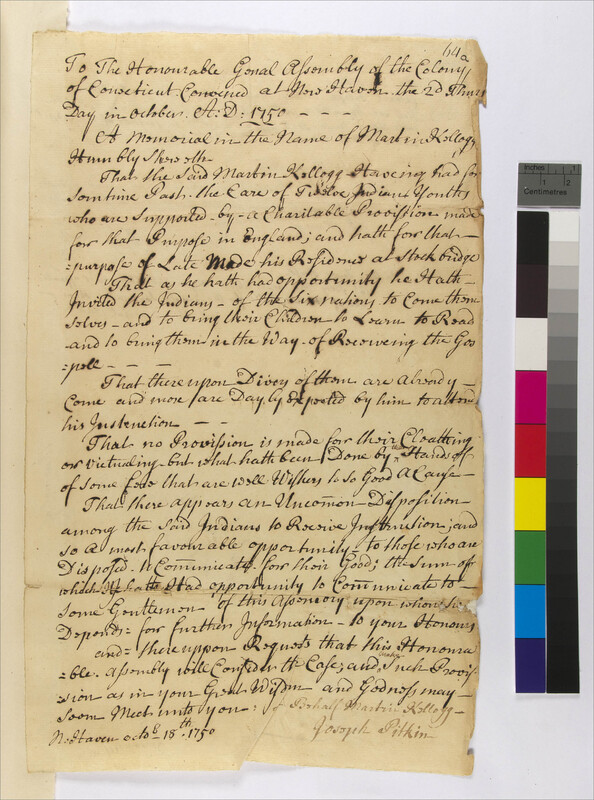 64a
To The Honourable Genal Assembly of the Colony
of Conecticut Convened at New Haven the 2d Thurs
Day in october. A:D: 1750 - - -
A Memorial in the Name of Martin Kellogg
Humbly Sheweth
That the said Martin Kellogg Haveing had for
Som time Past the Care of Twelve Indian Youths
who are Supported by a Charitable Provission made
for that Purpose in England; and hath for that
=purpose of Late Made his Residence at Stockbridge
That as he hath had opportunity he Hath
Invited the Indians of the Six nations to Come them
selves and to bring their Children to Learn to Read
and to bring them in the Way of Receiveing the Gos
=pell - - -
That there upon Divers of them are already
Come and more are Dayly Expected by him to attend
his Instruction - -
That no Provission is made for their Cloathing
or victualing but what hath been Done by Hands off
of Some few that are well Wishers to so Good A Cause
That there appears an Uncommon Disposition
among the said Indians to Receive Instruction; and
so a most favourable opportunity to those who are
Disposed to Comunicate for their Good; the Sum of
which He hath Had opportunity to Communicate to
Some Gentlemen of this Assembly upon whom he
Depends for further Information to your Honours
and thereupon Requests that this Honoura
=ble Assembly will Consider the Case; and Such Provis
=sion as in your Great Wisdm and Godness may
Seem Meet unto you: Behalf Martin Kellogg
Joseph Pitkin
N:Haven octo:br 18th 1750